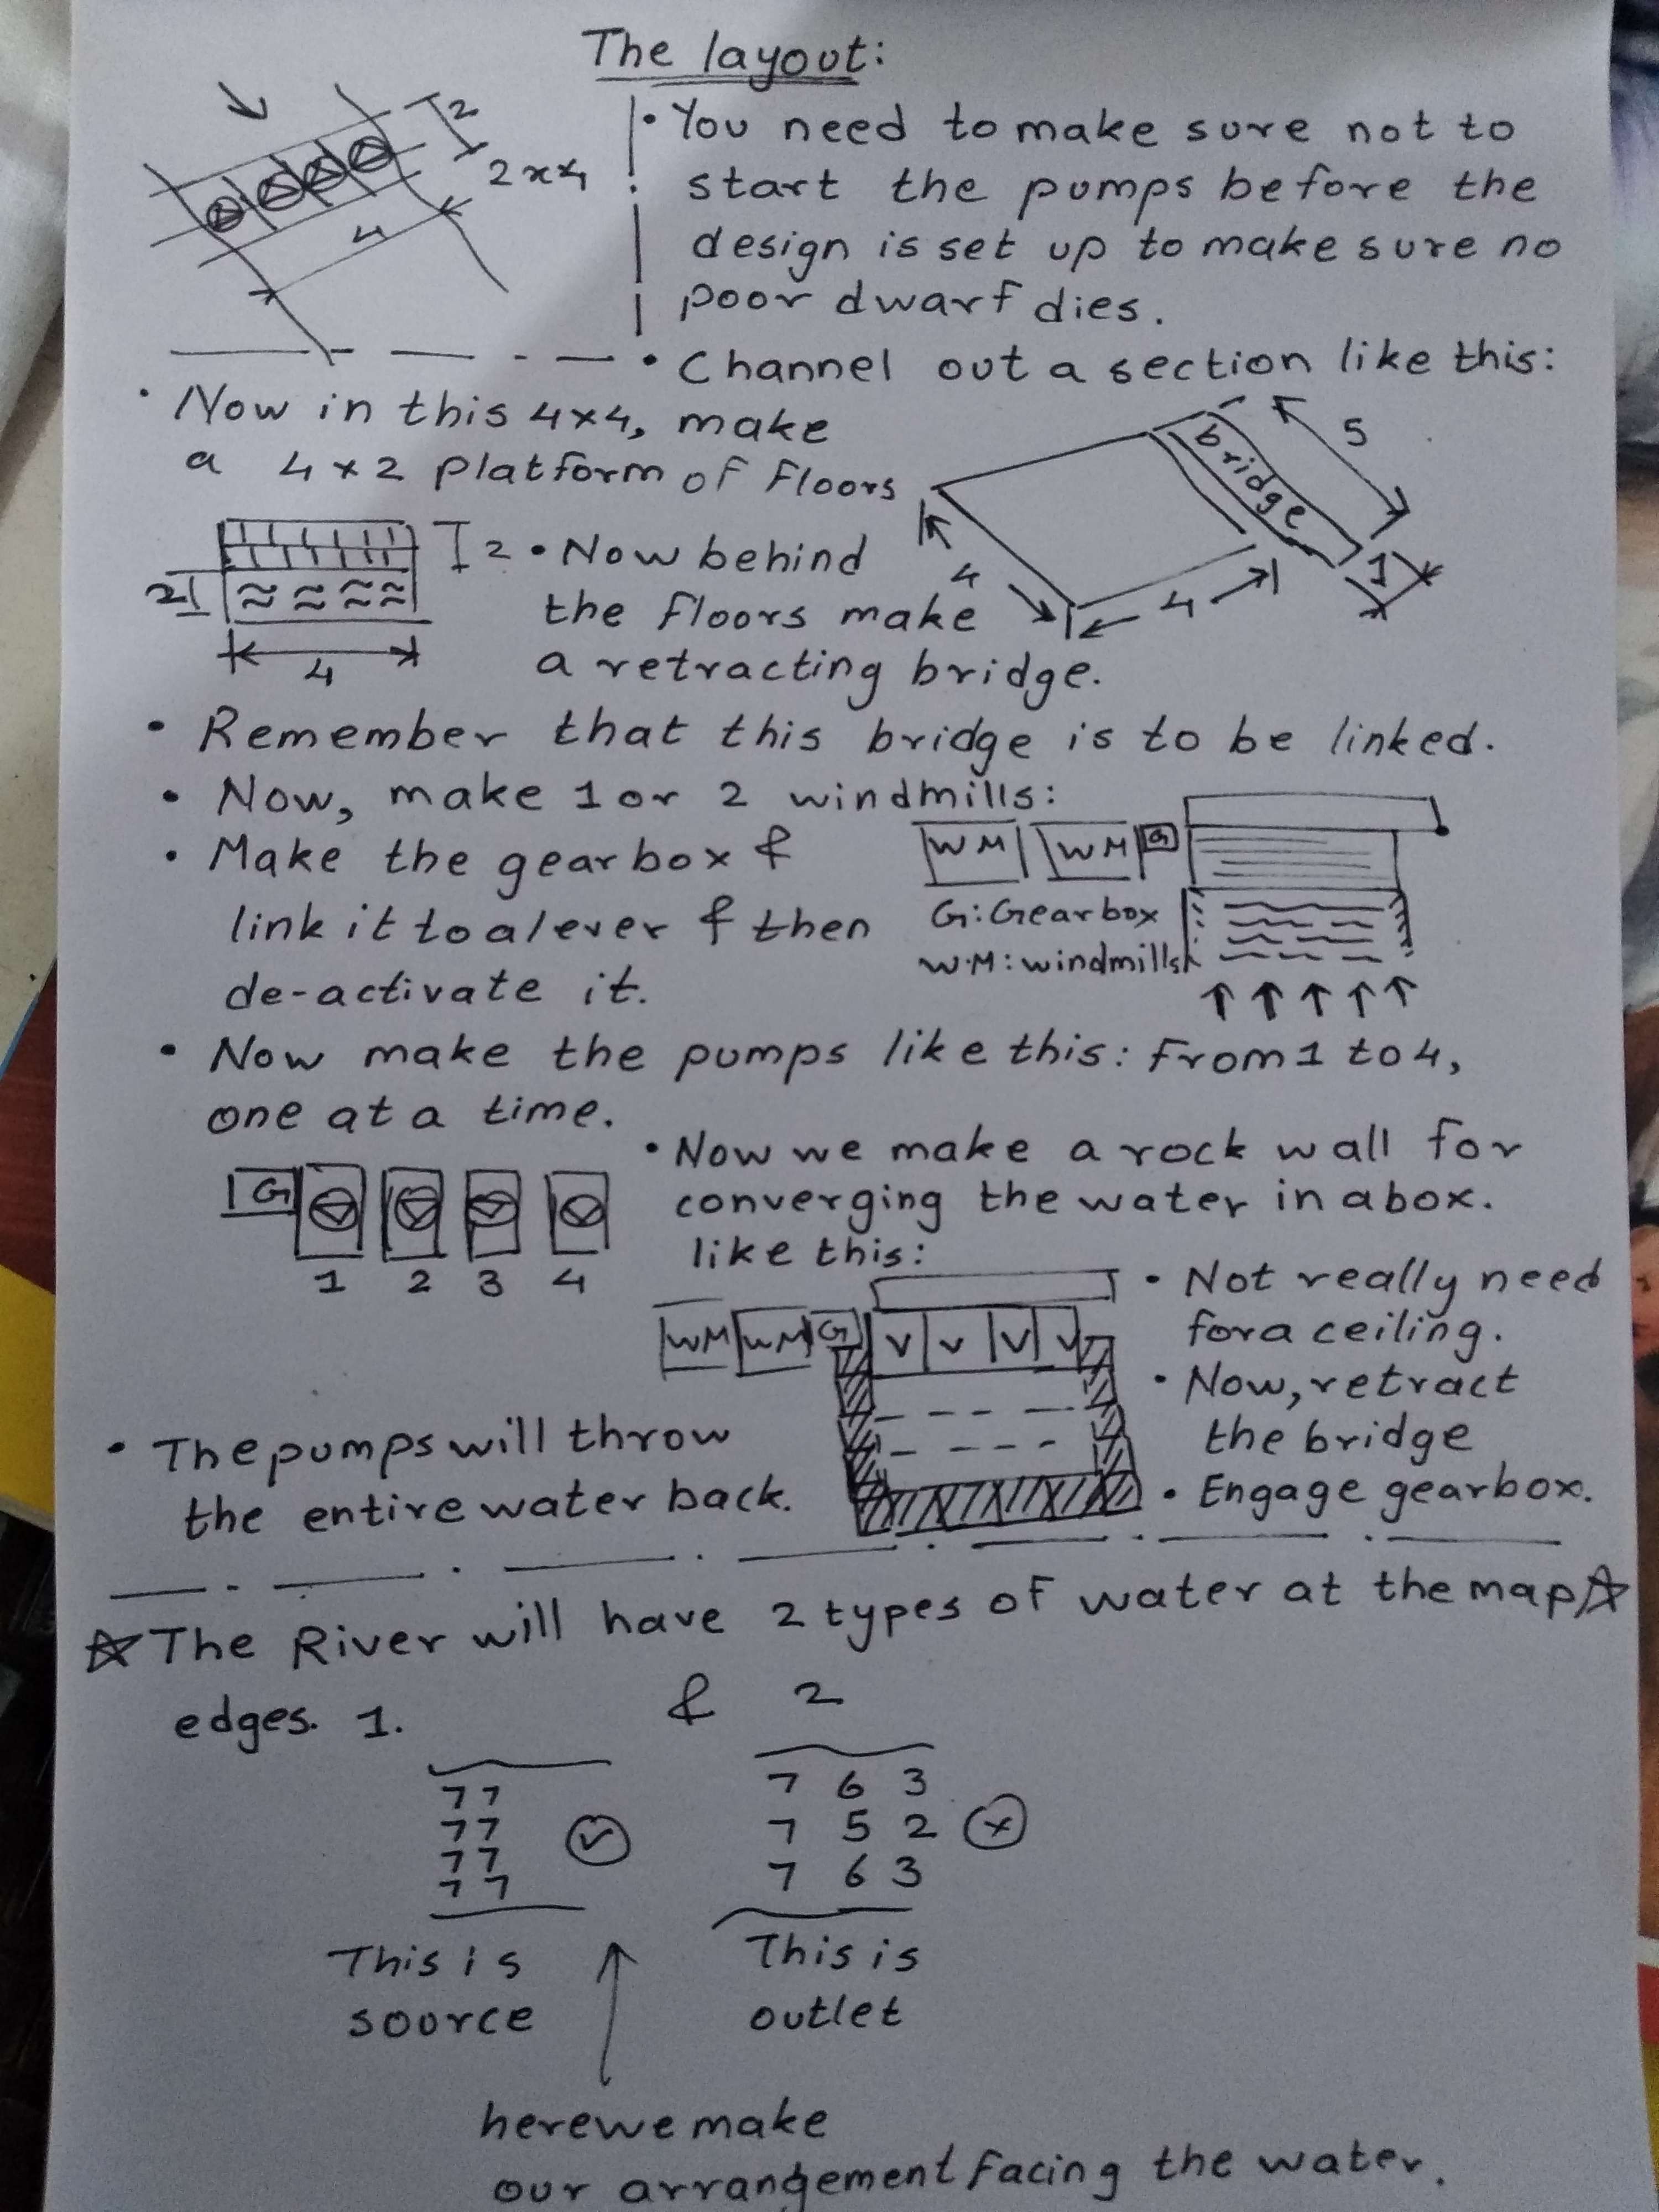 The layout:
2
2x4
4
• You need to make sure not to
start the pumps before the
design is set up to make sure no
poor dwarf dies.
• Channel out a section like this:
bridge
5
4
4
1
• Now in this 4x4, make
a 4x2 platform of floors
2
2
4
• Now behind
the floors make
a retracting bridge.
• Remember that this bridge is to be linked.
• Now, make 1 or 2 windmills:
• Make the gearbox &
link it to a lever & then
de-activate it.
WM WM G
G: Gearbox
W.M: windmills
• Now make the pumps like this: From 1 to 4,
one at a time.
G
1 2 3 4
• Now we make a rock wall for
converging the water in a box.
like this:
WM WM G V V V V
• Not really need
for a ceiling.
• Now, retract
the bridge
• Engage gearbox.
• The pumps will throw
the entire water back.
☆ The River will have 2 types of water at the map ☆
edges. 1. & 2
77
77
77
77
7 6 3
7 5 2
7 6 3
This is
source
This is
outlet
here we make
our arrangement facing the water.